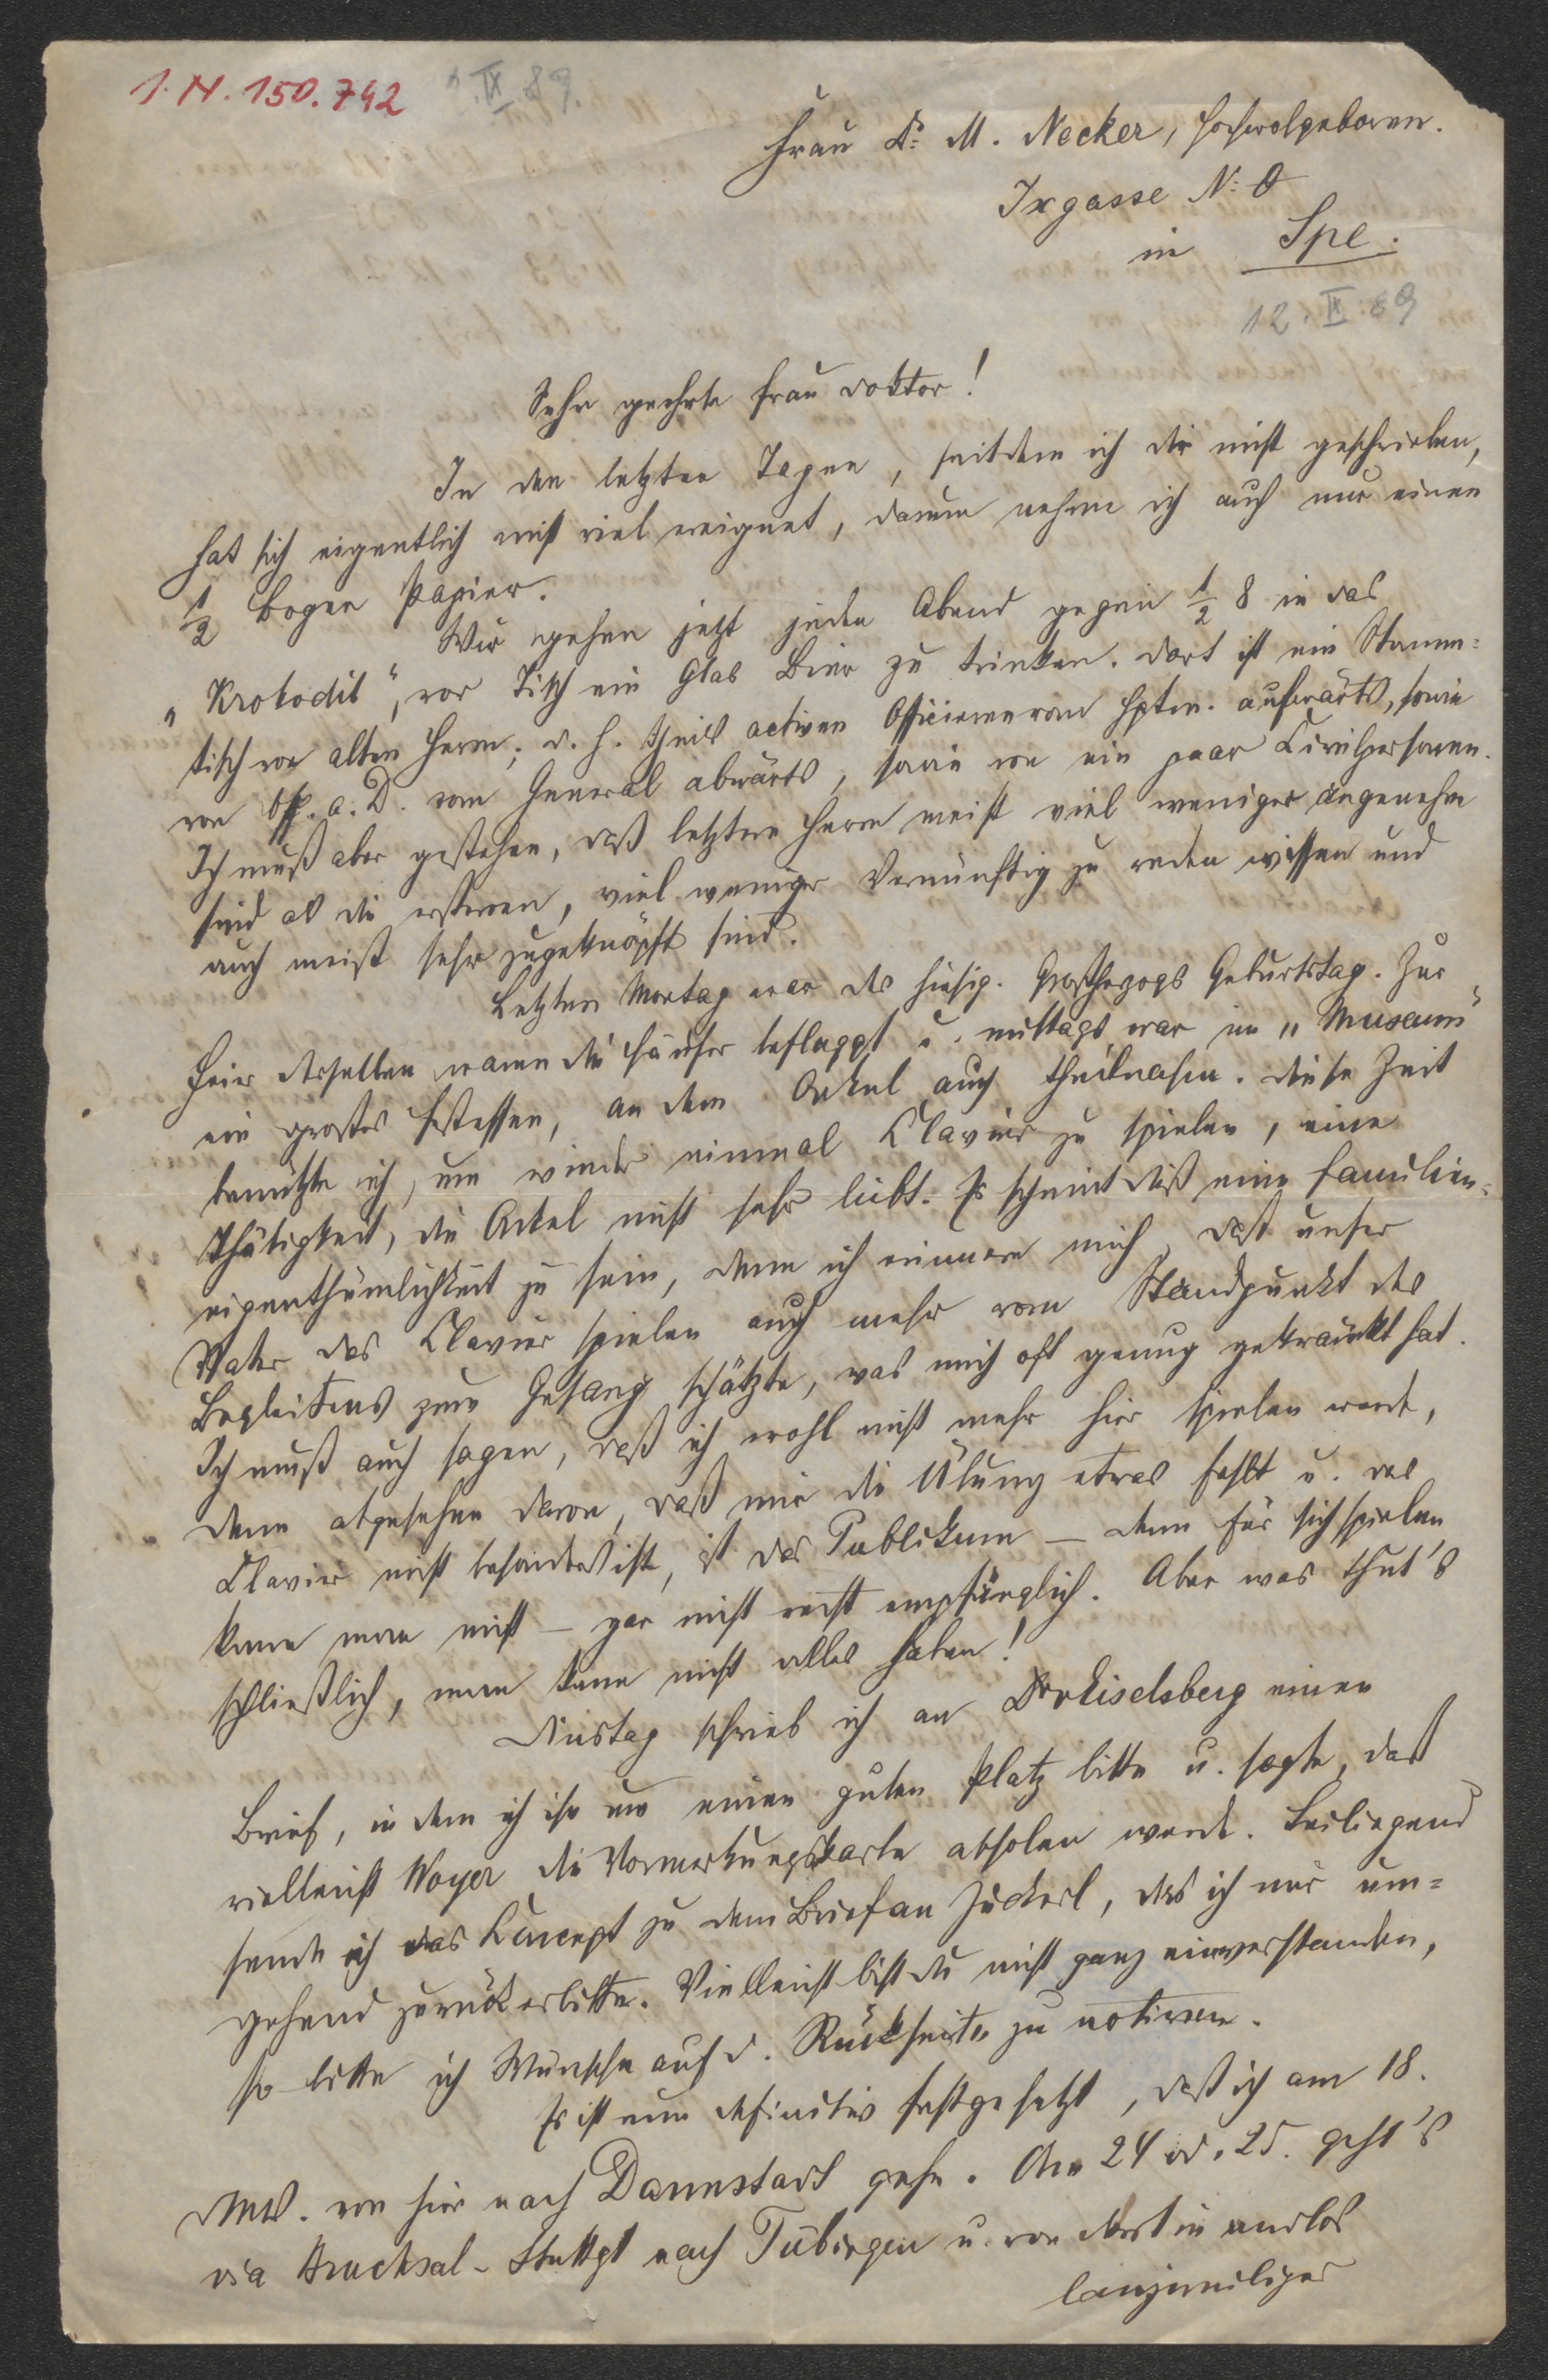 I. N. 150.742 1.IX.89.
Frau Dr. M. Necker, Hochwolgeboren.
Ixgasse No: 0
in Spe.
12.IX.89
Sehr geehrte Frau Doktor!
In den letzten Tagen, seitdem ich dir nicht geschrieben,
hat sich eigentlich nicht viel ereignet, darum nehme ich auch nur einen
½ Bogen Papier.
Wir gehen jetzt jeden Abend gegen ½ 8 in das
„Krokodil“, vor Tisch ein Glas Bier zu trinken. Dort ist ein Stamm=
tisch von alten Herrn; d. h. theils activen Officieren vom Hptm. aufwärts, sowie
von Off. a. D. vom General abwärts, sowie von ein paar Civilpersonen.
Ich muß aber gestehen, daß letztere Herrn meist viel weniger angenehm
sind als die ersteren, viel weniger vernünftig zu reden wissen und
auch meist sehr zugeknöpft sind.
Letzten Montag war des hiesig. Großherzogs Geburtstag. Zur
Feier desselben waren die Häuser beflaggt u. mittags war im „Museum“
ein großes Festessen, an dem Onkel auch theilnahm. Diese Zeit
benützte ich, um wieder einmal Clavier zu spielen, eine
Thätigkeit, die Onkel nicht sehr liebt. Es scheint dieß eine Familien=
eigenthümlichkeit zu sein, denn ich erinnere mich, daß unser
Vater das Clavier spielen auch mehr vom Standpunkt des
Begleitens zum Gesang schätzte, was mich oft genug gekränkt hat.
Ich muß auch sagen, daß ich wohl nicht mehr hier spielen werde,
denn abgesehen davon, daß mir die Übung etwas fehlt u. das
Clavier nicht besonders ist, ist das Publikum – denn für sich spielen
kann man nicht – gar nicht recht empfänglich. Aber was thut's
schließlich, man kann nicht alles haben!
Dienstag schrieb ich an Dr v Eiselsberg einen
Brief, in dem ich ihn um einen guten Platz bitte u. sagte, daß
vielleicht Woyer die Vormerkungskarte abholen werde. Beiliegend
sende ich das Concept zu dem Brief an Zuckerl, das ich mir um=
gehend zurückerbitte. Vielleicht bist du nicht ganz einverstanden,
so bitte ich Wünsche auf d. Rückseite zu notiren.
Es ist nun definitiv festgesetzt, daß ich am 18.
dMts. von hier nach Darmstadt gehe. Am 24 od. 25. geht's
via Bruchsal-Stuttgt nach Tübingen u. von dort in endlos
langweiliger